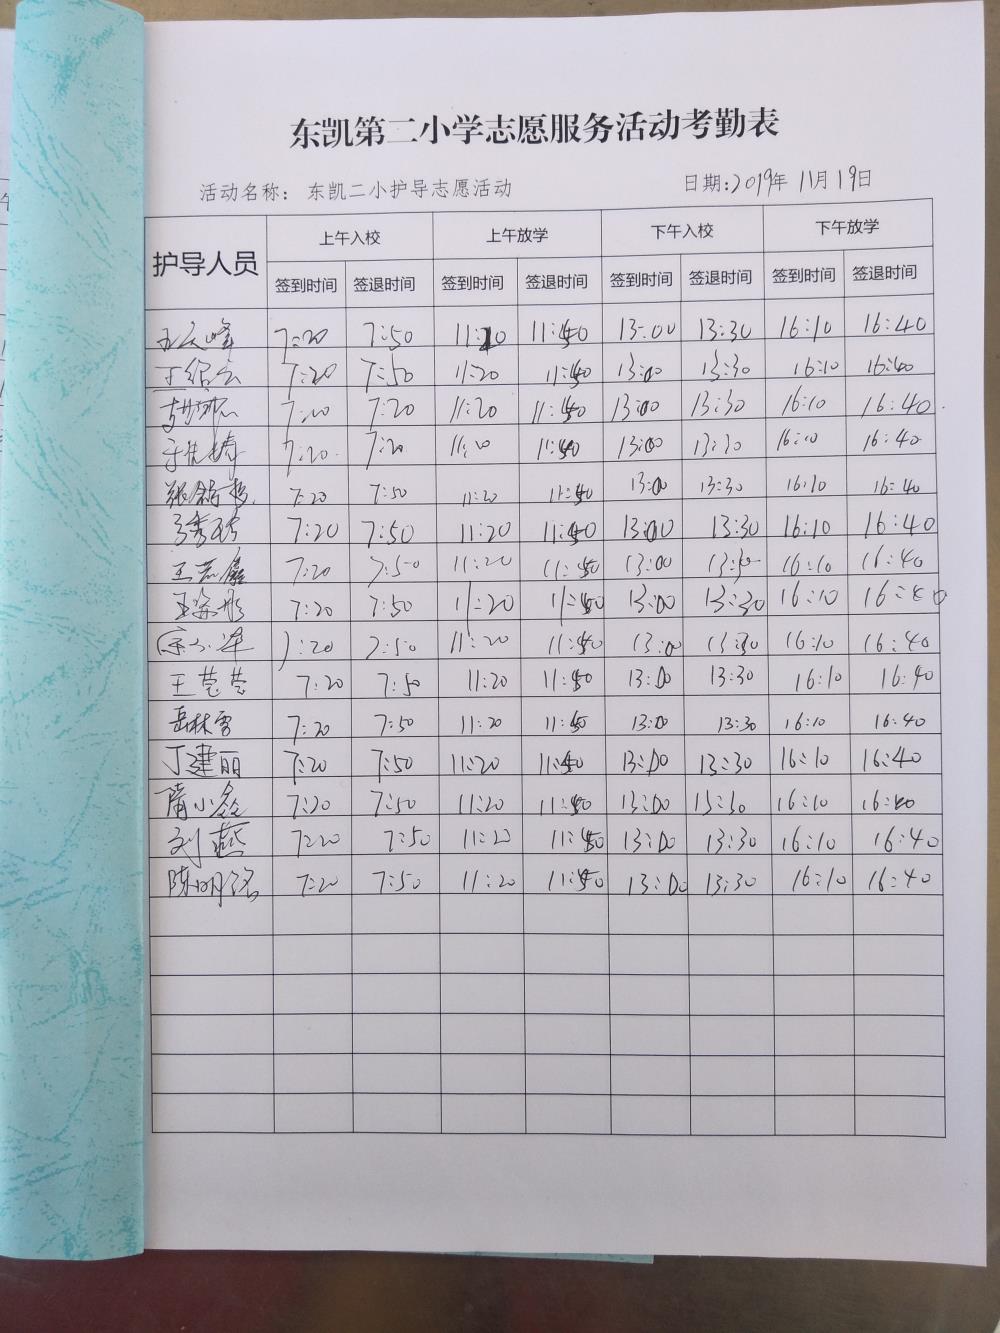 东凯第二小学志愿服务活动考勤表
活动名称：东凯二小护导志愿活动 日期:2019年11月19日
护导人员 上午入校 上午放学 下午入校 下午放学
签到时间 签退时间 签到时间 签退时间 签到时间 签退时间 签到时间 签退时间
7:20 7:50 11:20 11:40 13:00 13:30 16:10 16:40
7:20 7:50 11:20 11:40 13:00 13:30 16:10 16:40
7:20 7:20 11:20 11:40 13:00 13:30 16:10 16:40
7:20 7:20 11:20 11:40 13:00 13:30 16:10 16:40
7:20 7:50 11:20 11:40 13:00 13:30 16:10 16:40
7:20 7:50 11:20 11:40 13:00 13:30 16:10 16:40
王志鑫 7:20 7:50 11:20 11:40 13:00 13:30 16:10 16:40
王姿彤 7:20 7:50 11:20 11:40 13:00 13:30 16:10 16:40
7:20 7:50 11:20 11:40 13:00 13:30 16:10 16:40
王莹莹 7:20 7:50 11:20 11:40 13:00 13:30 16:10 16:40
岳林雪 7:20 7:50 11:20 11:40 13:00 13:30 16:10 16:40
丁建丽 7:20 7:50 11:20 11:40 13:00 13:30 16:10 16:40
隋小鑫 7:20 7:50 11:20 11:40 13:00 13:30 16:10 16:40
刘燕 7:20 7:50 11:20 11:40 13:00 13:30 16:10 16:40
陈明铭 7:20 7:50 11:20 11:40 13:00 13:30 16:10 16:40